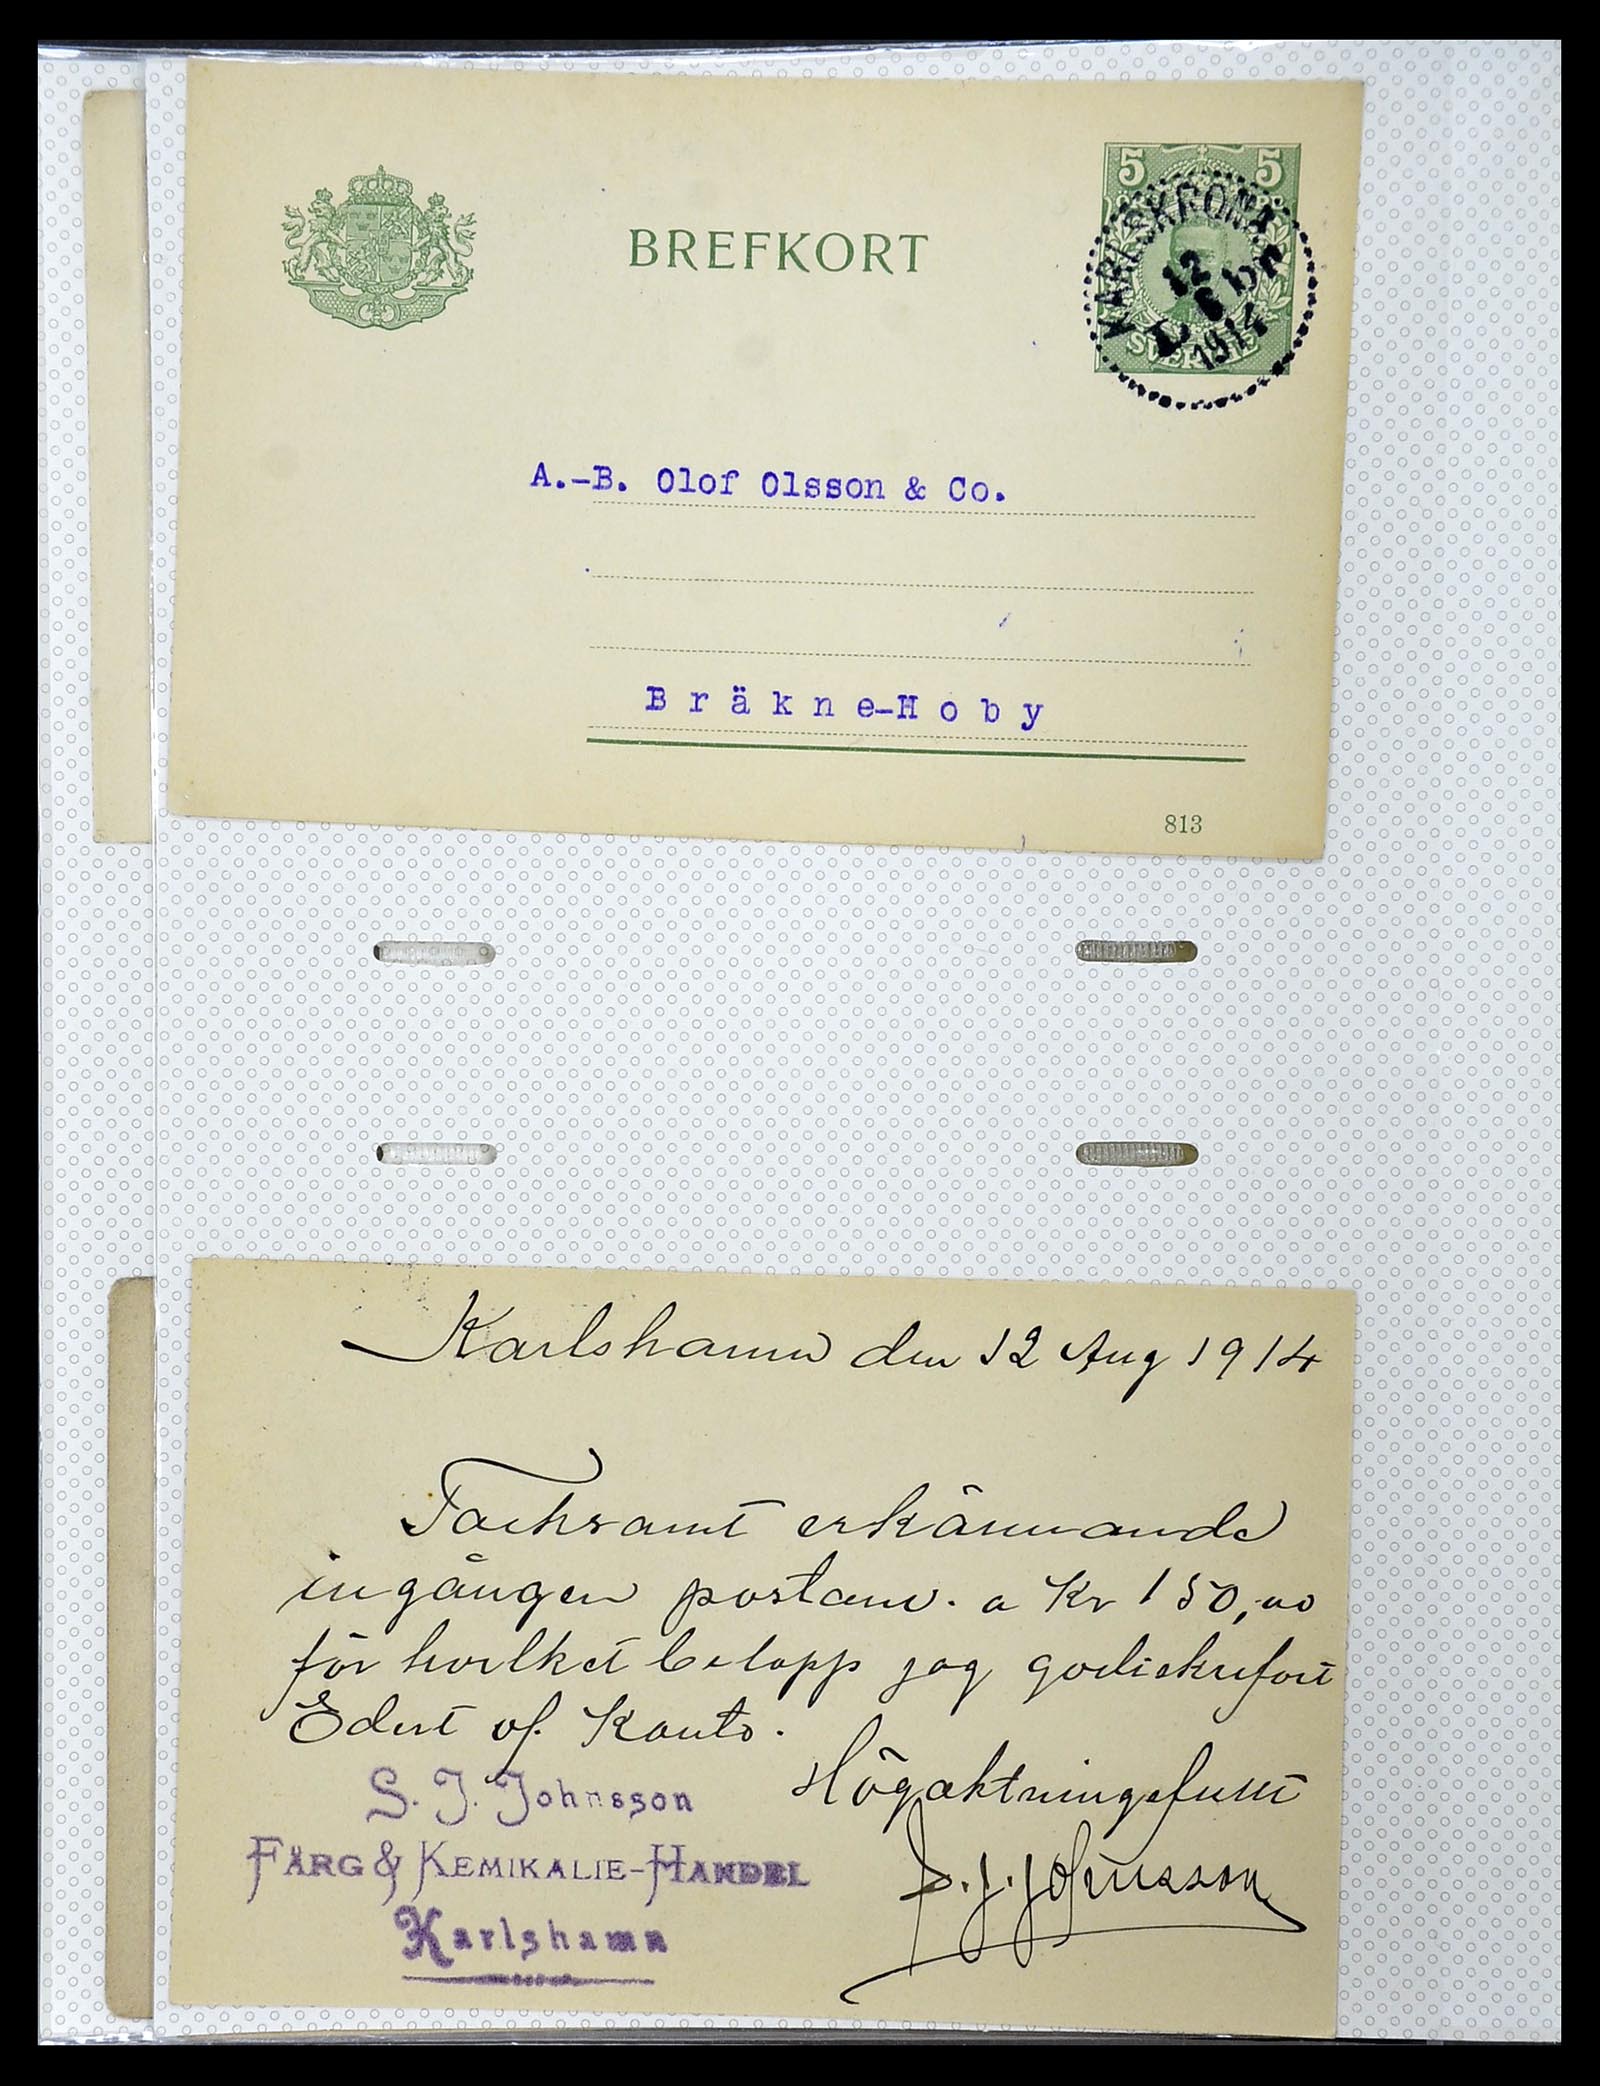 5 5
BREFKORT
KARLSKRONA
12
1914
SVERIGE
A.-B. Olof Olsson & Co.
Bräkne-Hoby
813
Karlshamn den 12 Aug 1914
Tacksamt erkännande
ingången postanv. a Kr 150,00
för hvilket belopp jag godtskrifvit
Edert af. Konto.
Högaktningsfullt
S. J. Johnsson
S. J. Johnsson
FÄRG & KEMIKALIE-HANDEL
Karlshamn